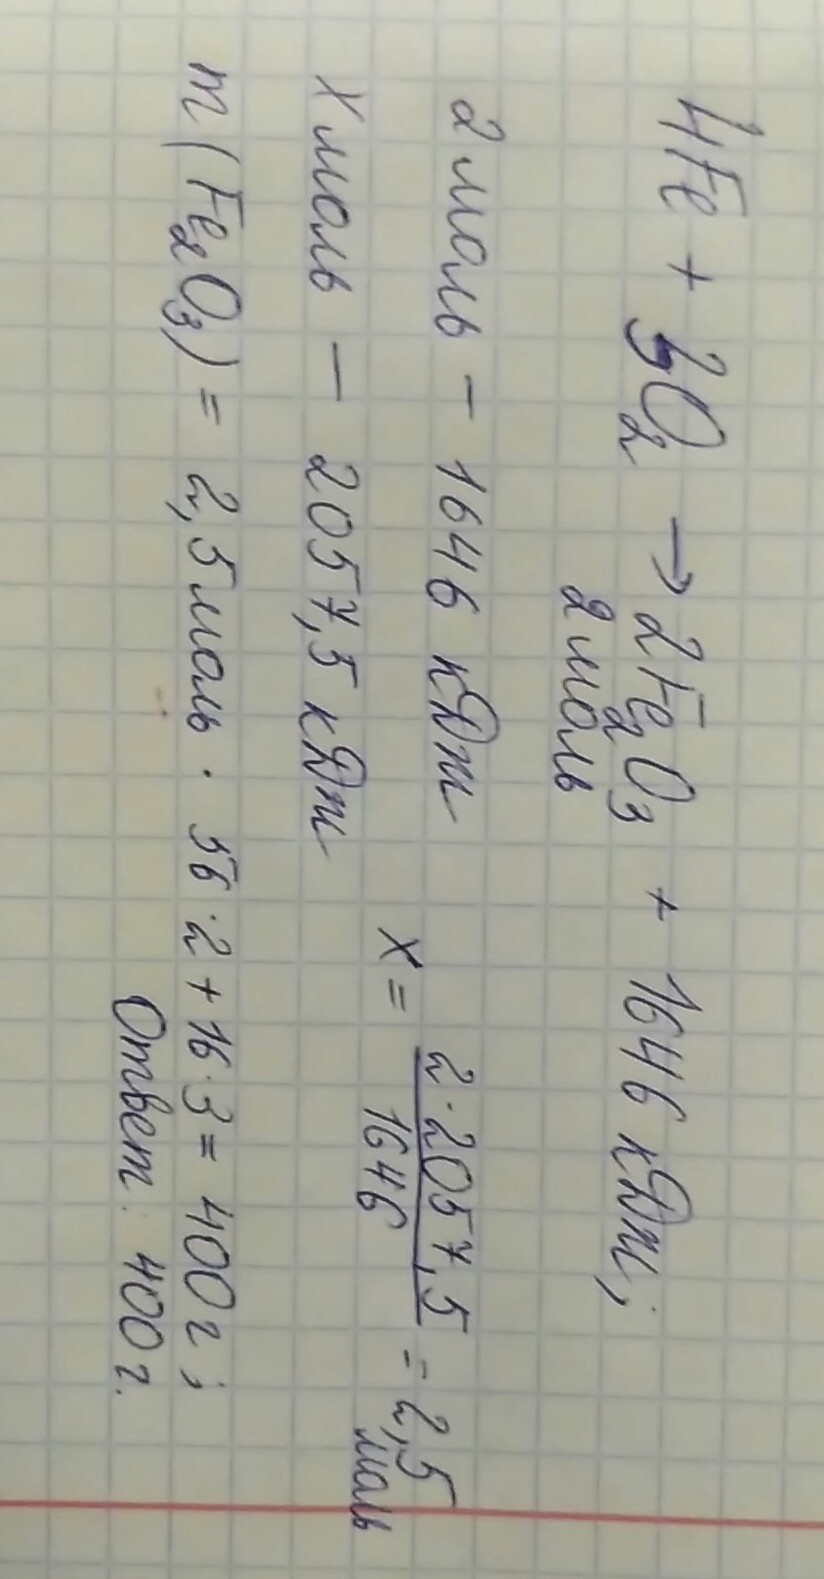 4Fe + 3O₂ → 2Fe₂O₃ + 1646 кДж;
2 моль
2 моль - 1646 кДж
x моль - 2057,5 кДж
x = 2·2057,5 / 1646 = 2,5 моль
m(Fe₂O₃) = 2,5 моль · 56·2+16·3 = 400 г;
Ответ: 400 г.